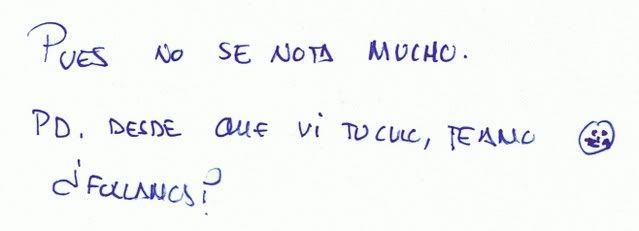 PUES NO SE NOTA MUCHO.
PD. DESDE QUE VI TU CULO, TE AMO
¿FOLLAMOS?